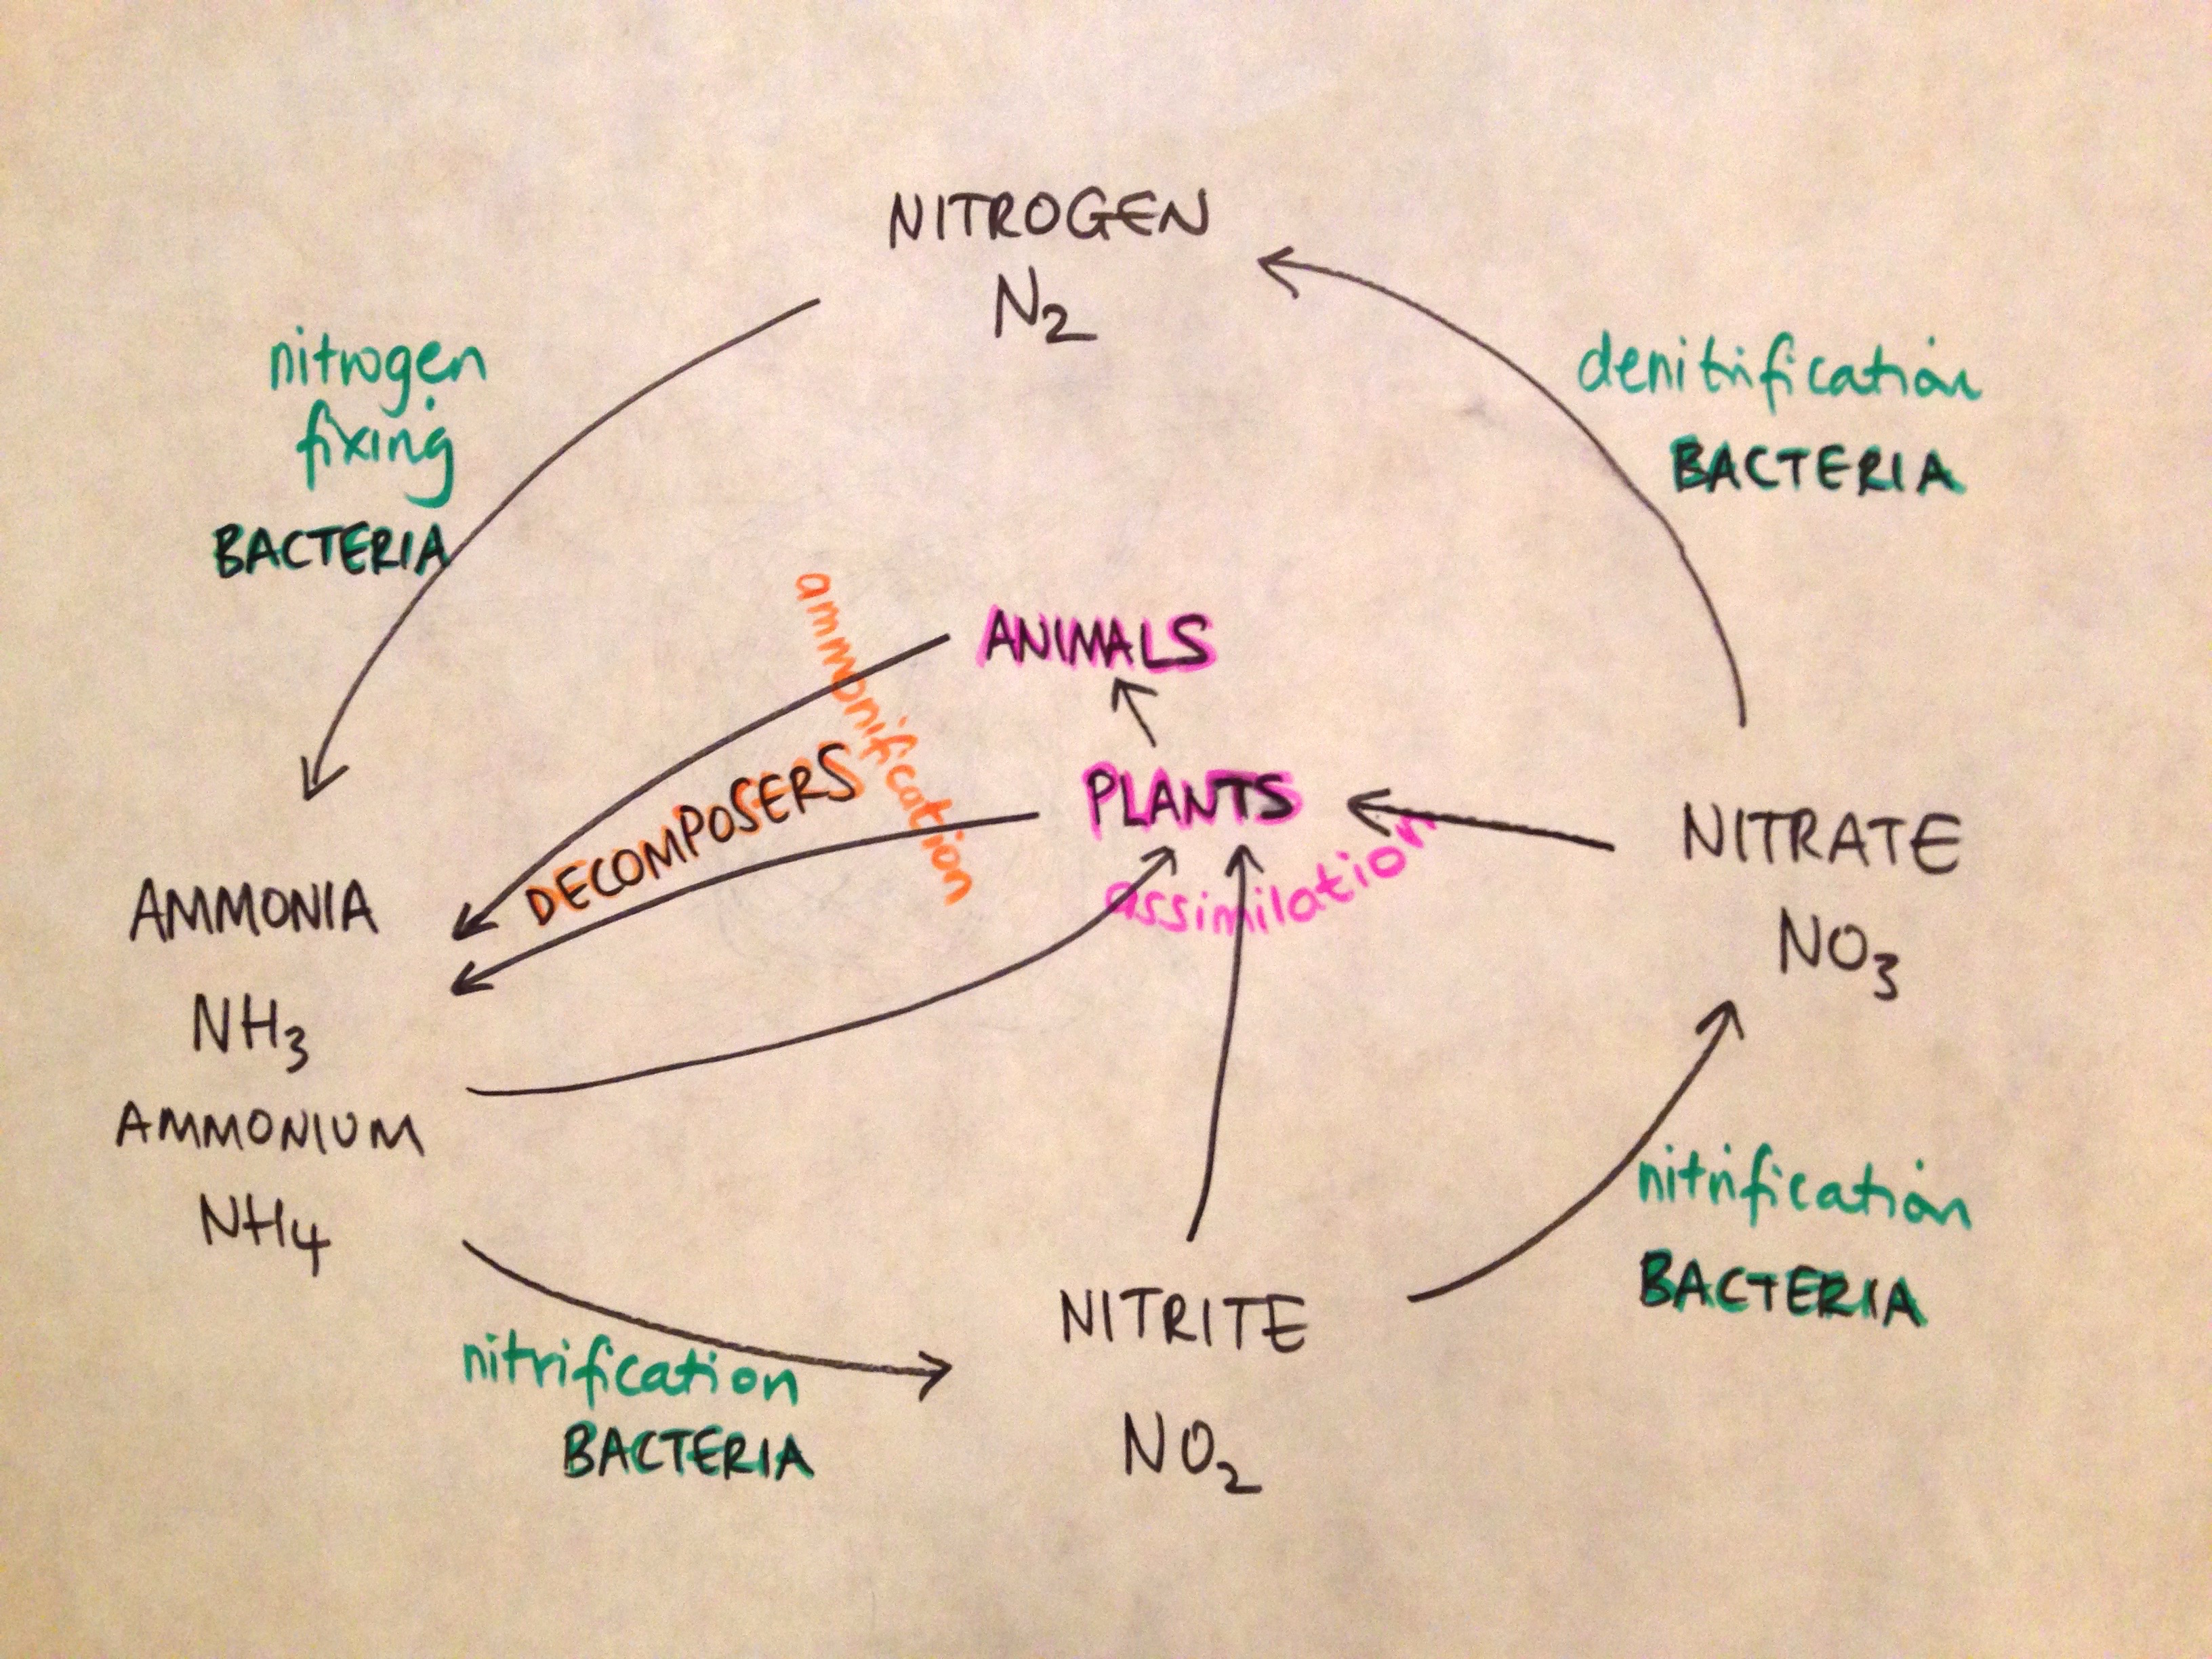 NITROGEN
N2
nitrogen
fixing
BACTERIA
denitrification
BACTERIA
ammonification
ANIMALS
DECOMPOSERS
PLANTS
assimilation
NITRATE
NO3
AMMONIA
NH3
AMMONIUM
NH4
nitrification
BACTERIA
NITRITE
NO2
nitrification
BACTERIA